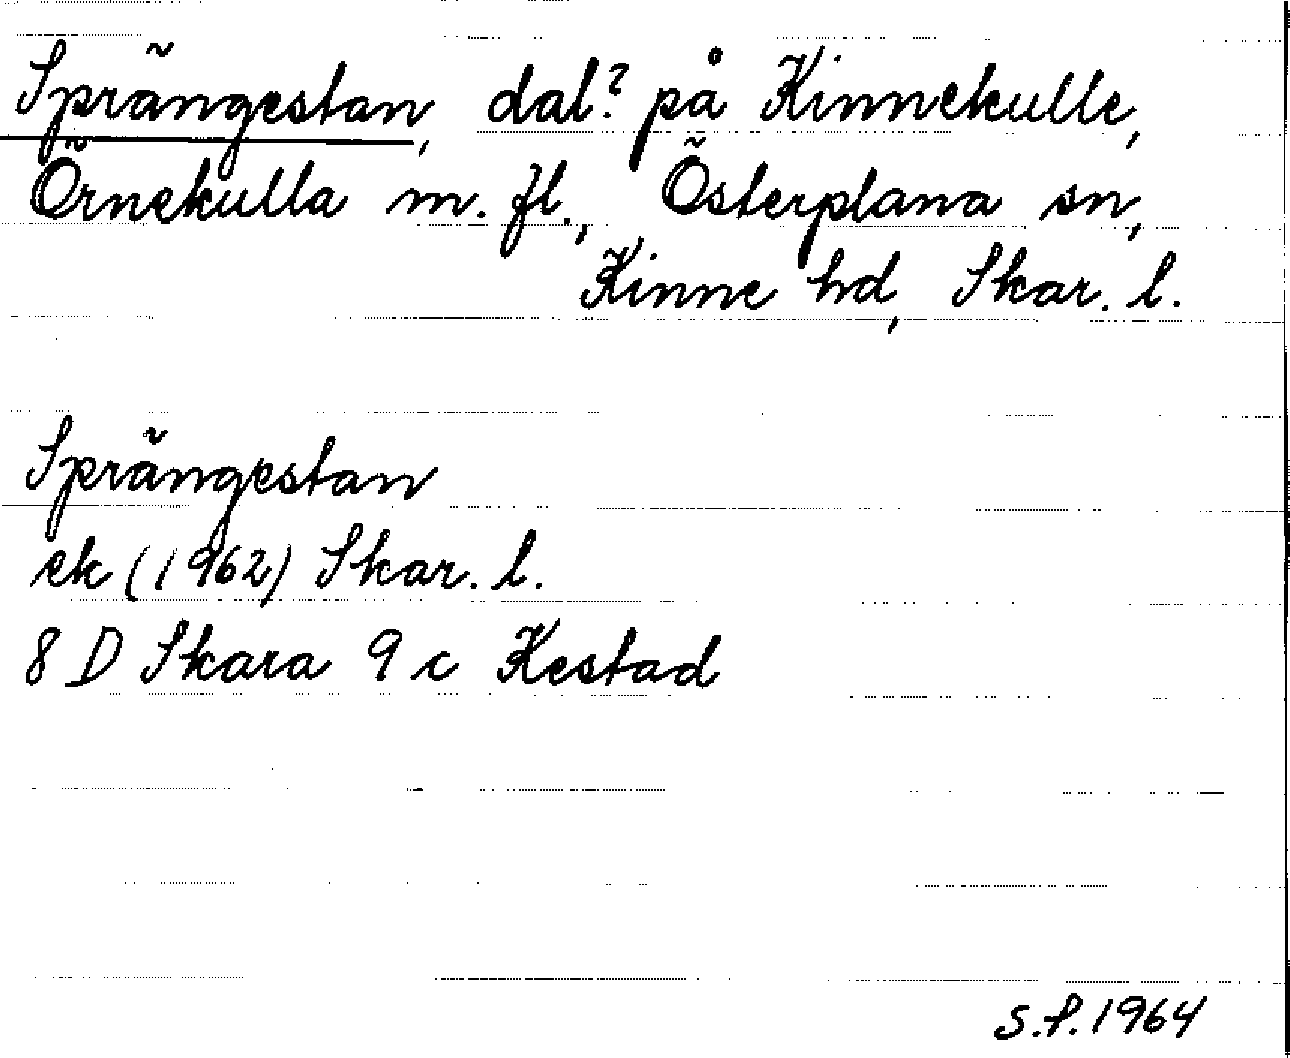 Sprängestan, dal? på Kinnekulle,
Örnekulla m. fl., Österplana sn,
Kinne hd, Skar. l.
Sprängestan
ek (1962) Skar. l.
8 D Skara 9 c Kestad
S.P. 1964